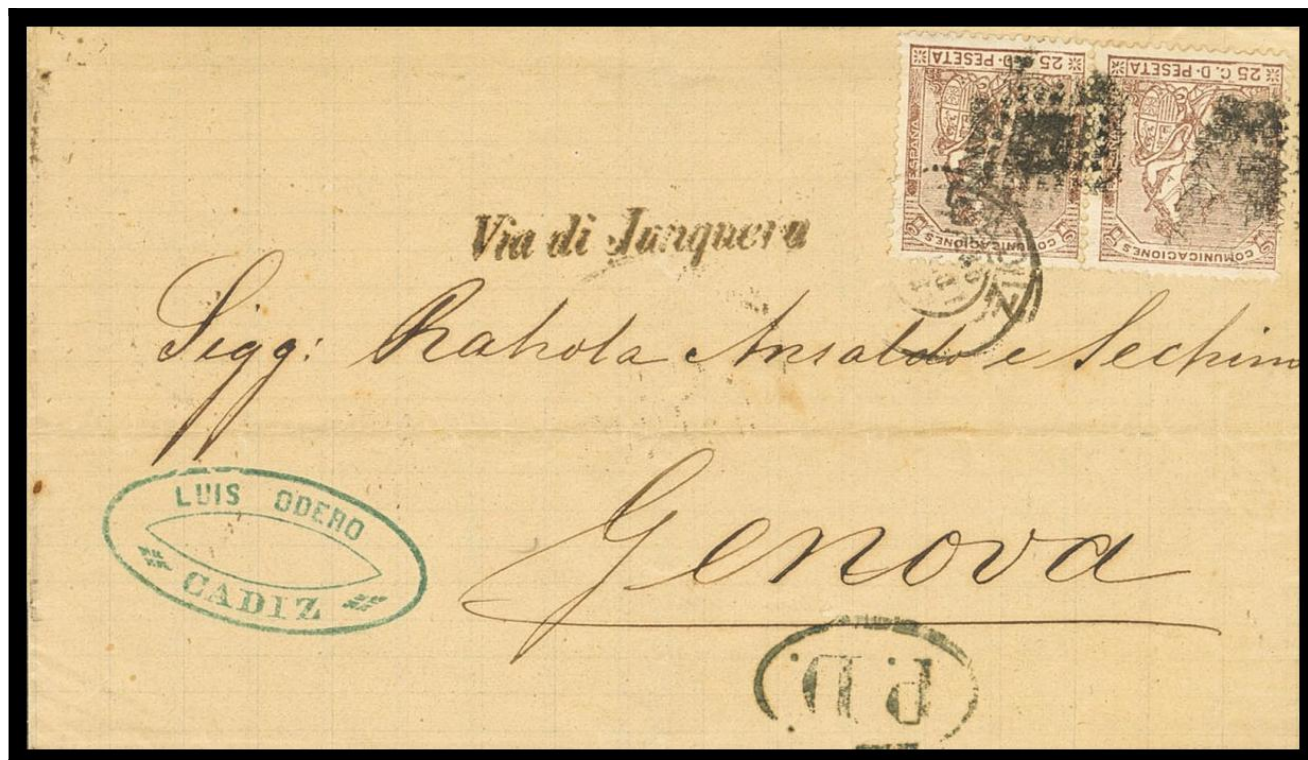 25 C. D. PESETA
25 C. D. PESETA
ESPAÑA
COMUNICACIONES
COMUNICACIONES
Via di Junquera
Sigg: Rahola Ansaldo e Sechin
Genova
LUIS ODERO
CADIZ
P. D.